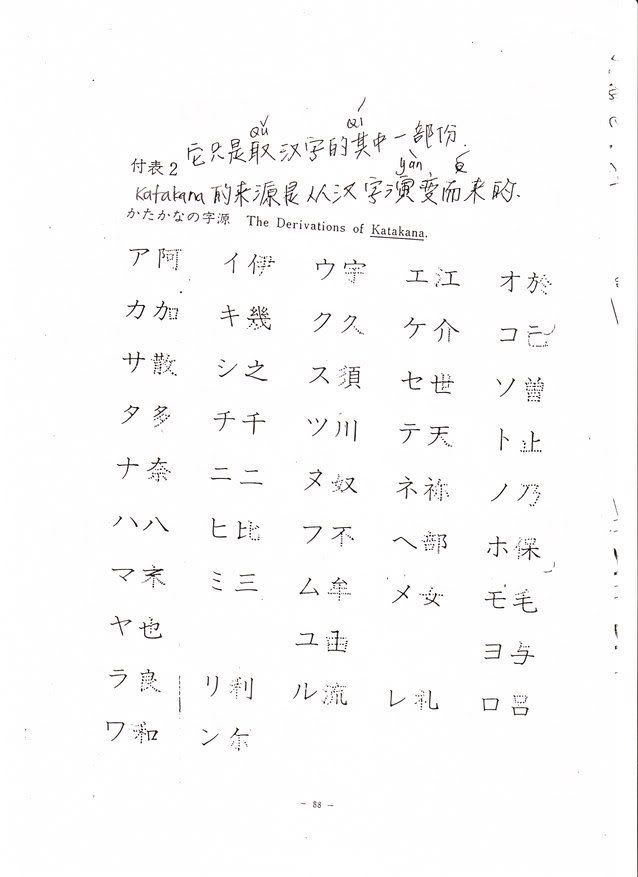 qǔ qí
它只是取汉字的其中一部份.
付表2
yàn
Katakana的来源是从汉字演变而来的.
かたかなの字源 The Derivations of Katakana.
ア阿 イ伊 ウ宇 エ江 オ於
カ加 キ幾 ク久 ケ介 コ己
サ散 シ之 ス須 セ世 ソ曽
タ多 チ千 ツ川 テ天 ト止
ナ奈 ニ二 ヌ奴 ネ祢 ノ乃
ハ八 ヒ比 フ不 ヘ部 ホ保
マ末 ミ三 ム牟 メ女 モ毛
ヤ也 ユ由 ヨ与
ラ良 リ利 ル流 レ礼 ロ呂
ワ和 ン尓
- 88 -